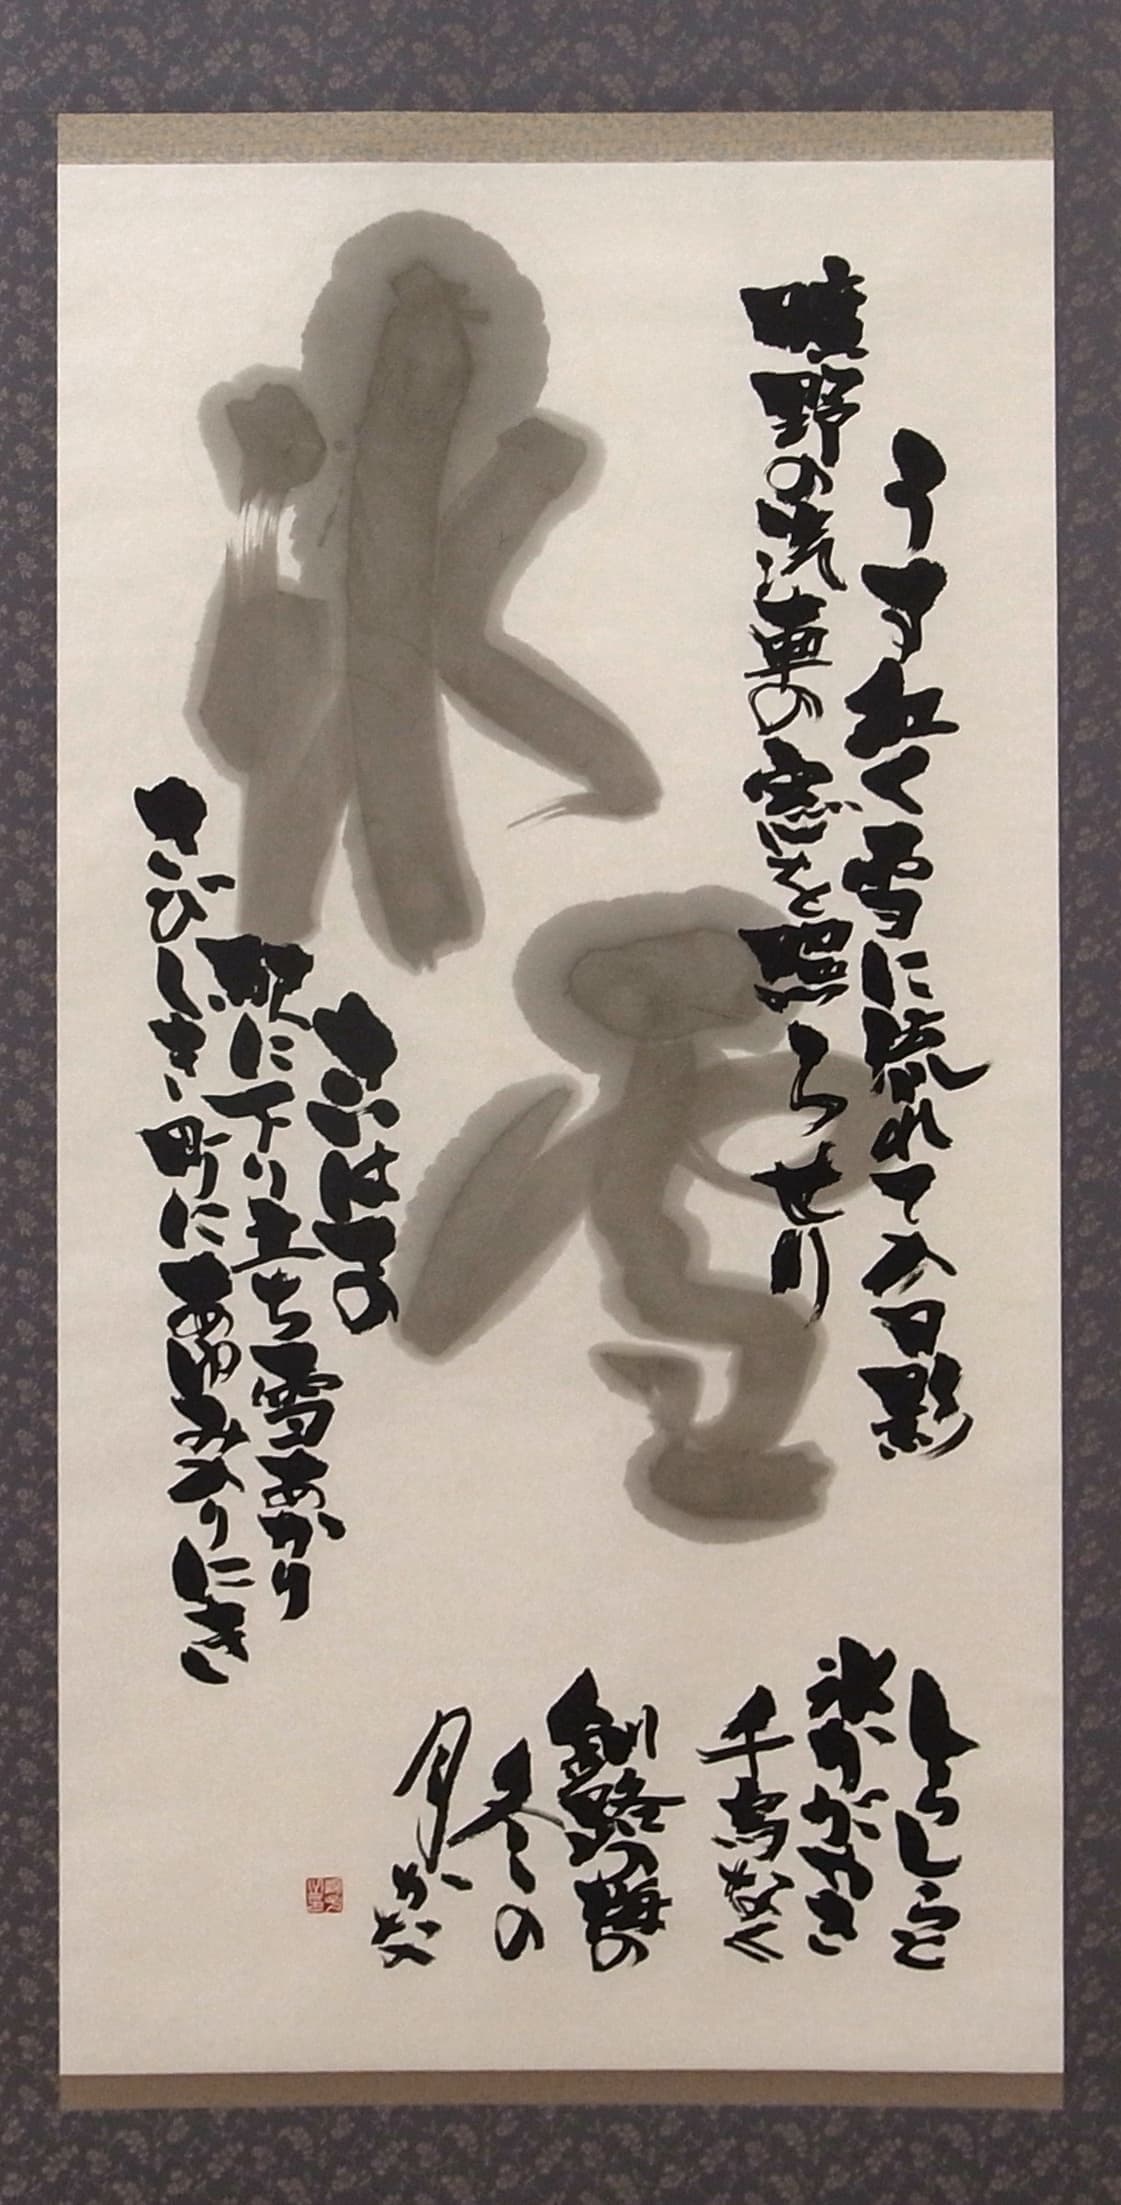 うす紅く雪に流れて入日影
曠野の汽車の窓を照らせり
氷
雪
さいはての
駅に下り立ち雪あかり
さびしき町にあゆみ入りにき
しらしらと
氷かがやき
千鳥なく
釧路の海の
冬の
月かな